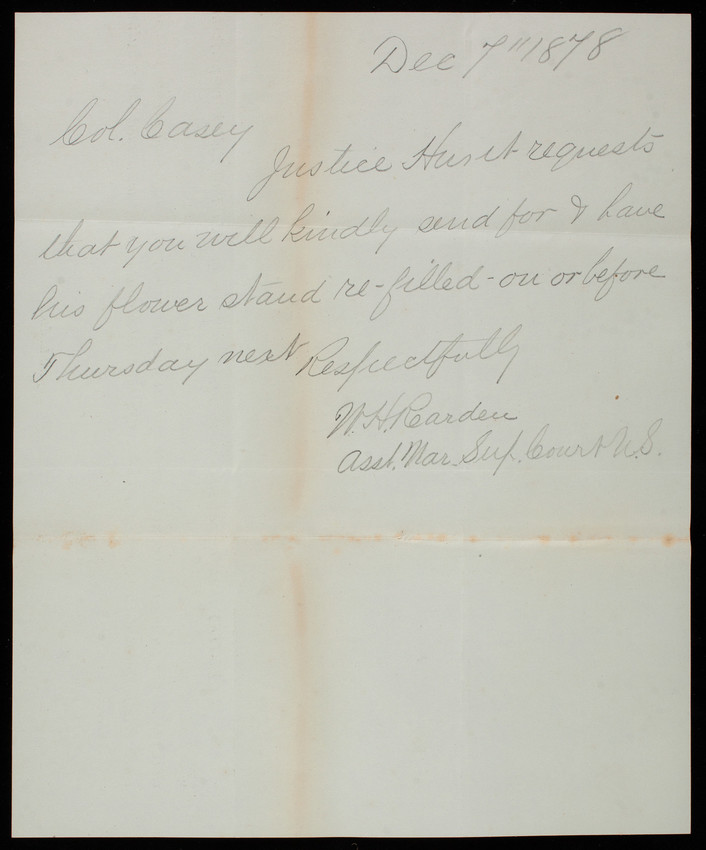 Dec 7" 1878
Col. Casey
Justice Hunt requests
that you will kindly send for & have
his flower stand re-filled - on or before
Thursday next Respectfully
W.H. Rearden
Asst. Mar. Sup. Court U.S.